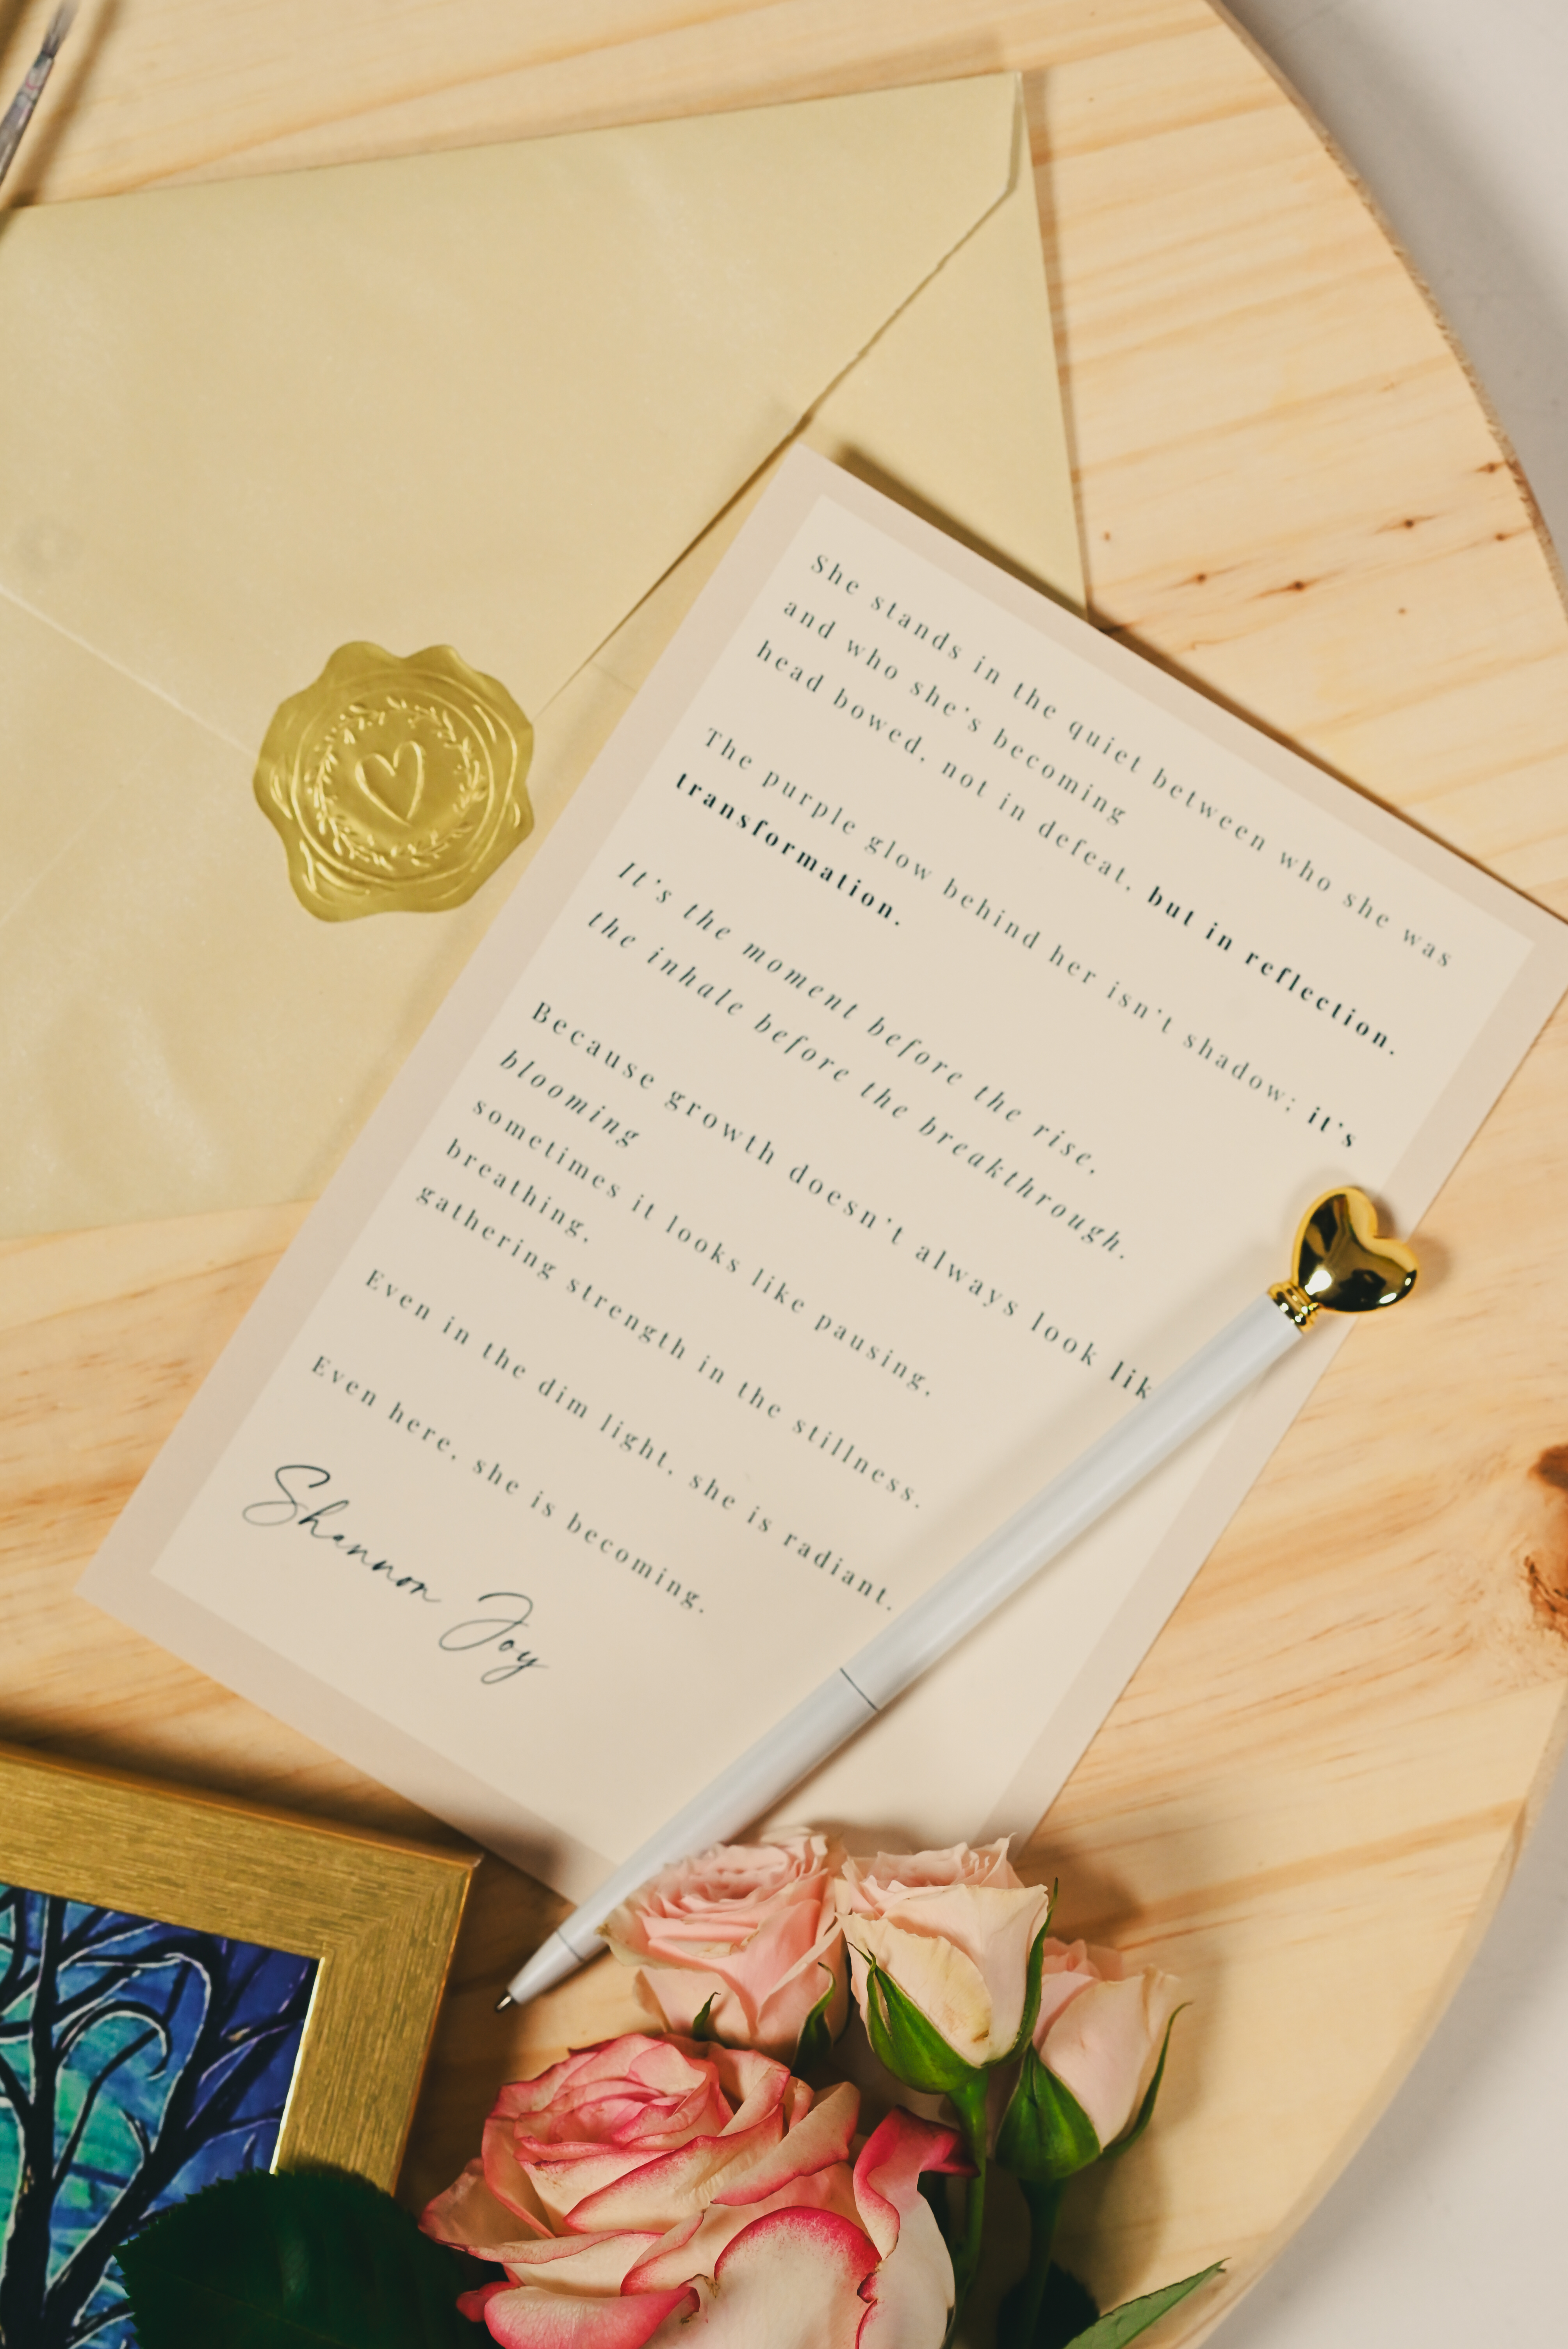 She stands in the quiet between who she was
and who she's becoming
head bowed, not in defeat, but in reflection.
The purple glow behind her isn't shadow; it's
transformation.
It's the moment before the rise,
the inhale before the breakthrough.
Because growth doesn't always look lik
blooming
sometimes it looks like pausing,
breathing,
gathering strength in the stillness.
Even in the dim light, she is radiant.
Even here, she is becoming.
Shannon Joy